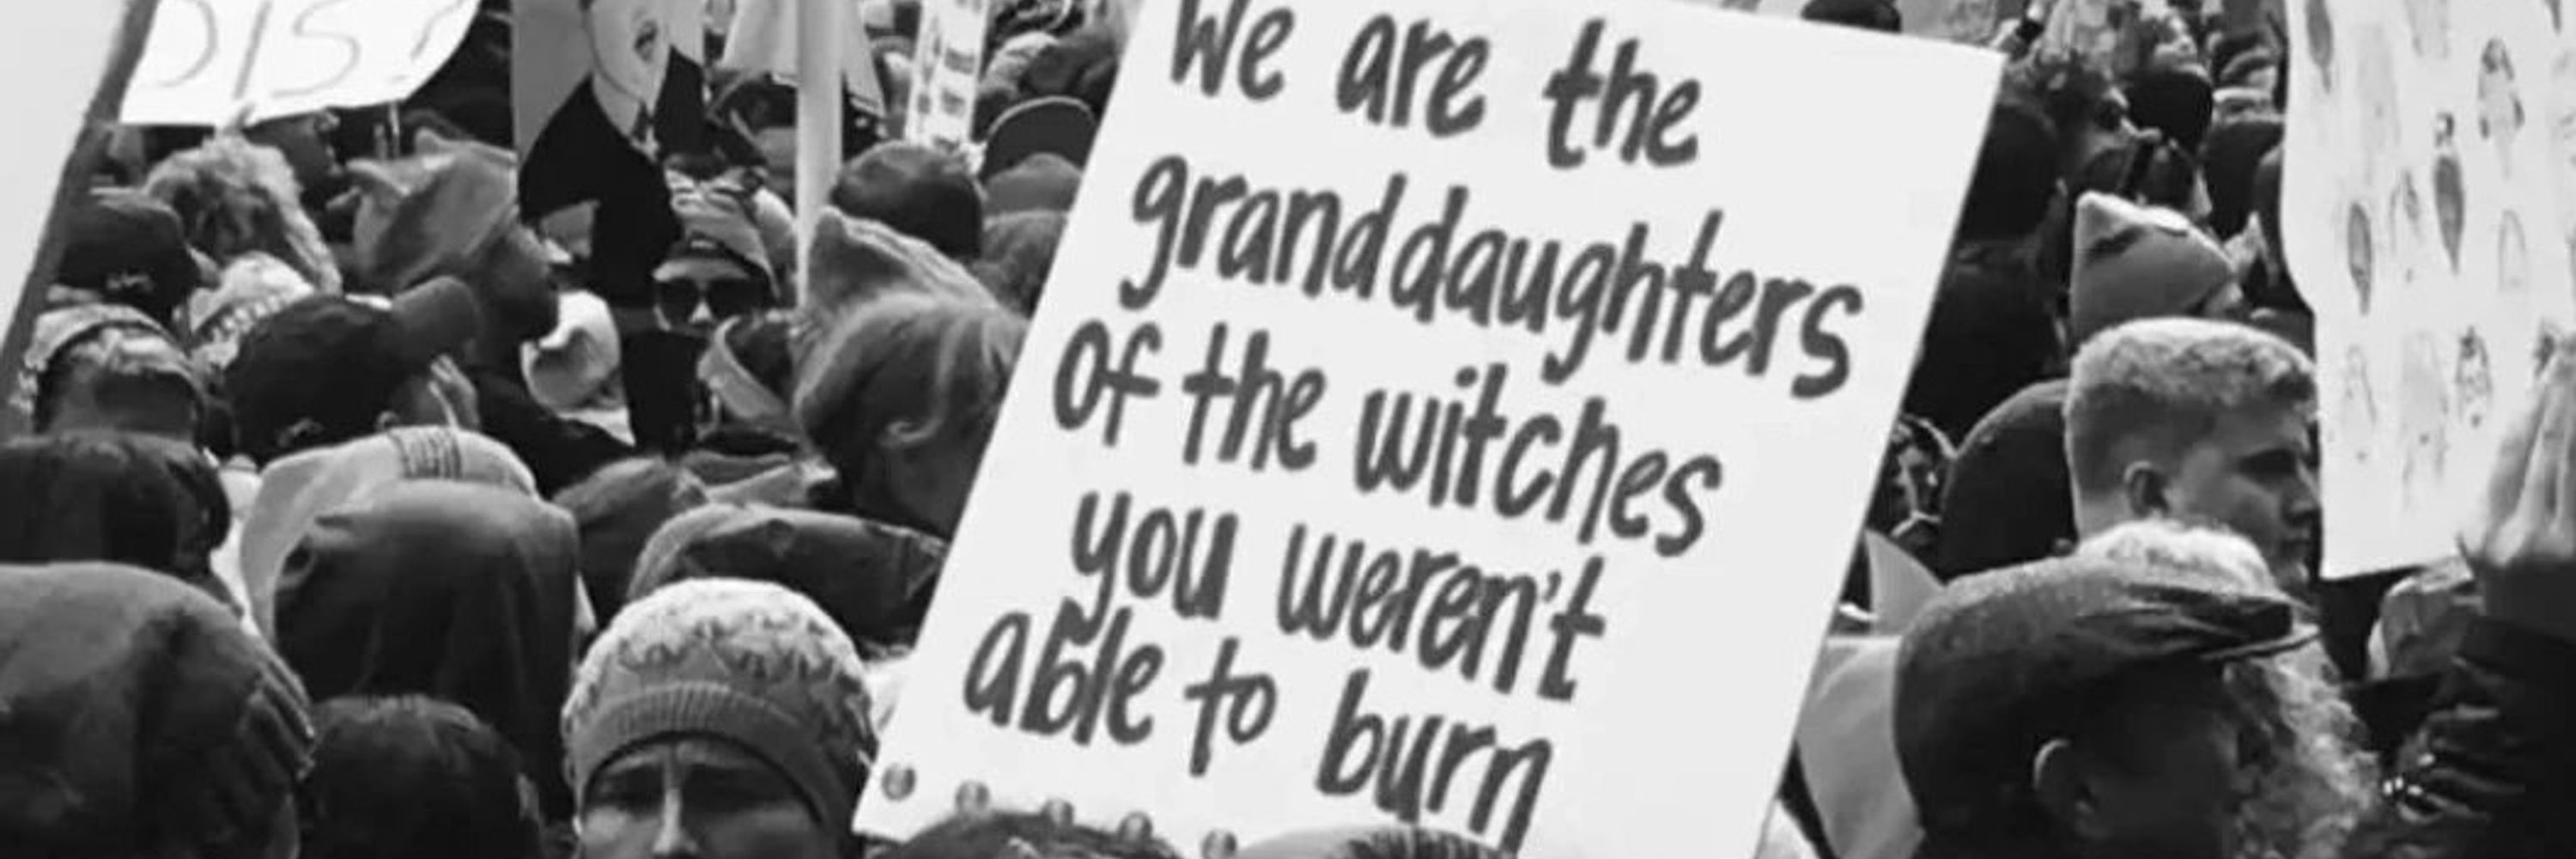 DIS?
We are the
granddaughters
of the witches
you weren't
able to burn